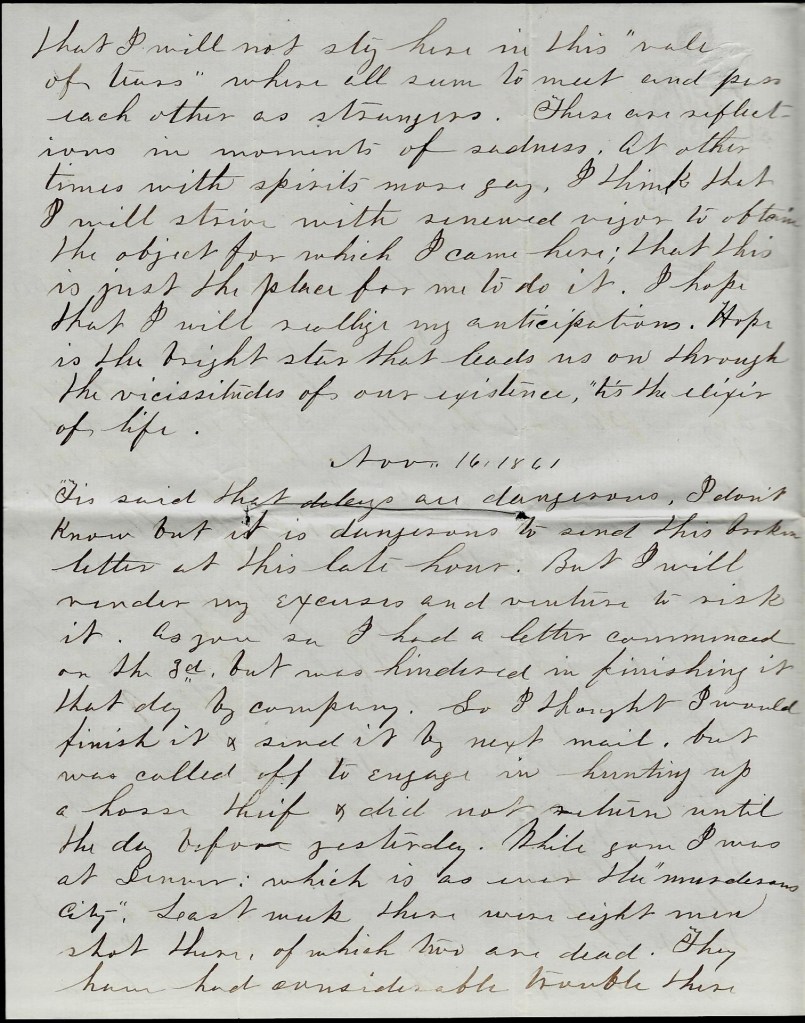 that I will not sty here in this "vale
of tears" where all seem to meet and pass
each other as strangers. These are reflect-
ions in moments of sadness. At other
times with spirits more gay, I think that
I will strive with renewed vigor to obtain
the object for which I came here; that this
is just the place for me to do it. I hope
that I will reallize my anticipations. Hope
is the bright star that leads us on through
the vicissitudes of our existence, 'tis the elixir
of life.
Nov. 16. 1861
'Tis said that delays are dangerous, I don't
know but it is dangerous to send this broken
letter at this late hour. But I will
render my excuses and venture to risk
it. As you see I had a letter commenced
on the 3d, but was hindered in finishing it
that day by company. So I thought I would
finish it & send it by next mail, but
was called off to engage in hunting up
a horse thief & did not return until
the day before yesterday. While gone I was
at Denver: which is as ever the "murderous
City". Least week there were eight men
shot there, of which two are dead. They
have had considerable trouble there